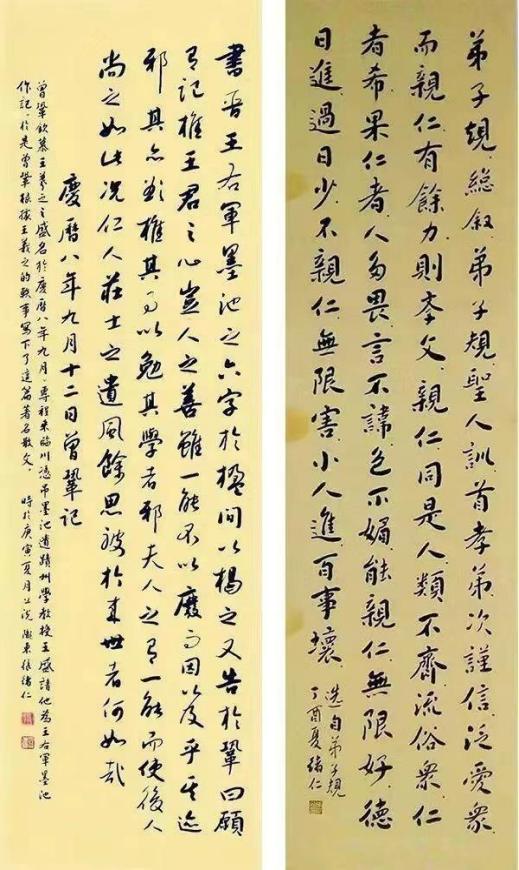 弟子規總叙弟子規聖人訓首孝弟次謹信泛愛衆
而親仁有餘力則學文親仁同是人類不齊流俗衆仁
者希果仁者人多畏言不諱色不媚能親仁無限好德
日進過日少不親仁無限害小人進百事壞
選自弟子規
丁酉夏緒仁
書晉王右軍墨池之六字於楹間以揭之又告於鞏曰願
有記推王君之心豈人之善雖一能不以廢而因以及乎其迹
邪其亦欲推其事以勉其學者邪夫人之有一能而使後人
尚之如此況仁人莊士之遺風餘思被於来世者何如哉
慶曆八年九月十二日曾鞏記
曾鞏欽慕王羲之之盛名於慶曆八年九月專程来臨川憑吊墨池遺蹟州學教授王盛請他為王右軍墨池
作記於是曾鞏根據王羲之的軼事寫下了這篇著名散文 時於庚寅夏月 張緒仁